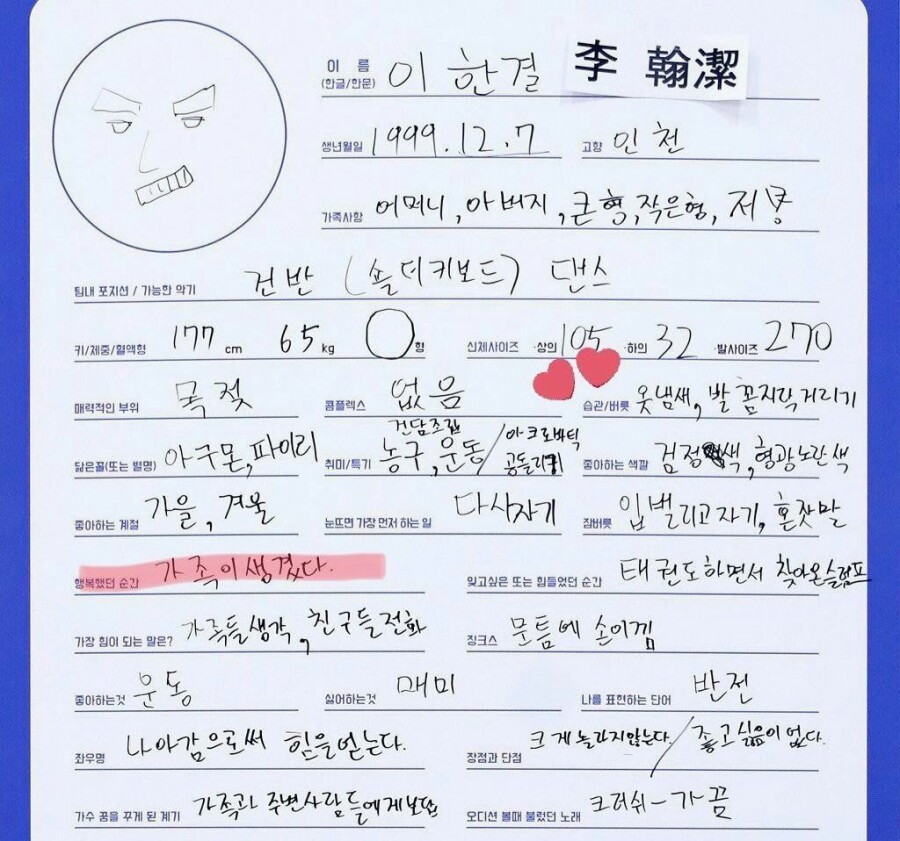 이 름
(한글/한문) 이 한결 李 翰潔
생년월일 1999.12.7 고향 인천
가족사항 어머니, 아버지, 큰형, 작은형, 저
팀내 포지션 / 가능한 악기 건반 (숄더키보드) 댄스
키/체중/혈액형 177 cm 65 kg O 형 신체사이즈 ·상의 105 ·하의 32 ·발사이즈 270
매력적인 부위 목젖 콤플렉스 없음 습관/버릇 옷냄새, 발 꼼지락거리기
닮은꼴(또는 별명) 아구몬, 파이리 취미/특기 건담조립 농구, 운동/아크로바틱 공돌리기 좋아하는 색깔 검정색, 형광노란색
좋아하는 계절 가을, 겨울 눈뜨면 가장 먼저 하는 일 다시자기 잠버릇 입벌리고자기, 혼잣말
행복했던 순간 가족이생겼다. 잊고싶은 또는 힘들었던 순간 태권도하면서 찾아온슬럼프
가장 힘이 되는 말은? 가족들생각, 친구들전화 징크스 문틈에 손이낌
좋아하는것 운동 싫어하는것 매미 나를 표현하는 단어 반전
좌우명 나아감으로써 힘을얻는다. 장점과 단점 크게놀라지않는다./좋고싫음이없다.
가수 꿈을 꾸게 된 계기 가족과 주변사람들에게보답 오디션 볼때 불렀던 노래 크러쉬-가끔